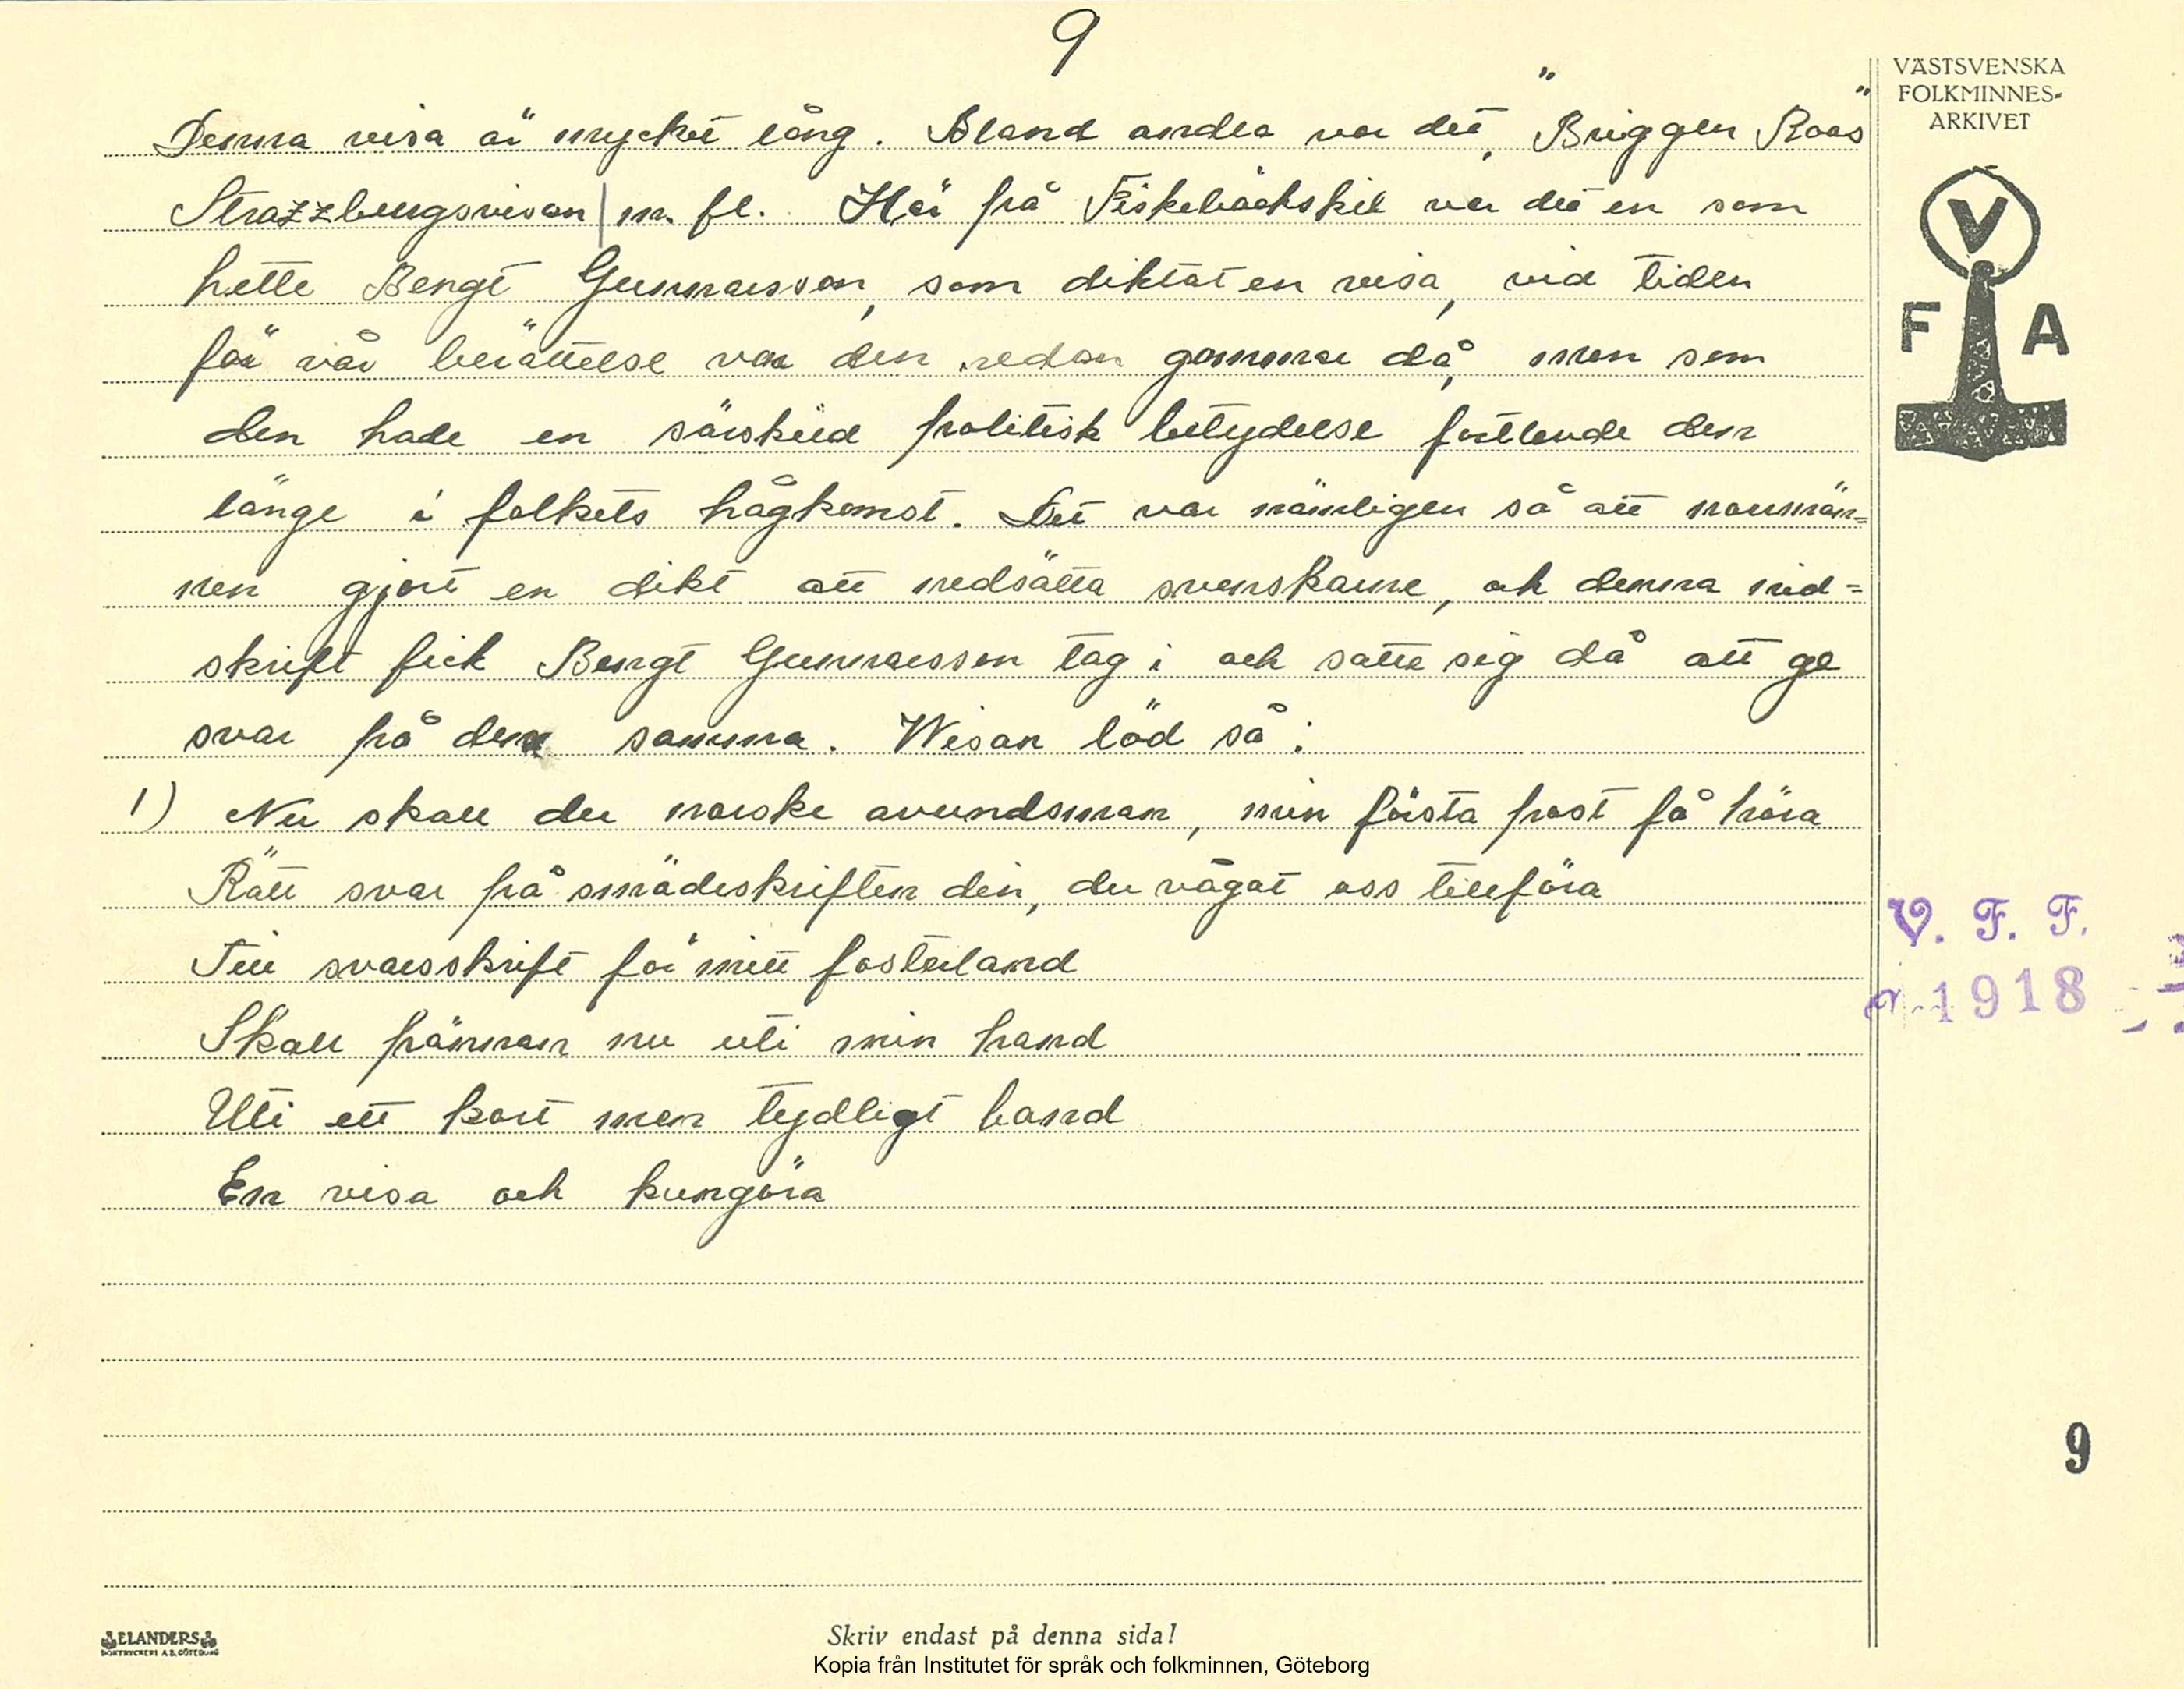 9
VÄSTSVENSKA
FOLKMINNES-
ARKIVET
V
F A
Denna visa är mycket lång. Bland andra var det, "Briggen Roas"
Strazzbuugsvisan | m. fl. Här på Fiskebäckskil var det en som
hette Bengt Gunnarsson, som diktat en visa, vid tiden
för vår berättelse var den redan gammal då, men som
den hade en särskild politisk betydelse fortlevde den
länge i folkets hågkomst. Det var nämligen så att norrmän=
nen gjort en dikt att nedsätta svenskarne, och denna nid=
skrift fick Bengt Gunnarsson tag i och satte sig då att ge
svar på den samma. Wisan löd så:
1) Nu skall du norske avundsman, min första post få höra
Rätt svar på smädeskriften din, du vågat oss tillföra
Till svarsskrift för mitt fosterland
Skall pännan nu uti min hand
Uti ett kort men tydligt band
En visa och kungöra
V. F. F.
1918
9
ELANDERS
BOKTRYCKERI A.B. GÖTEBORG
Skriv endast på denna sida!
Kopia från Institutet för språk och folkminnen, Göteborg